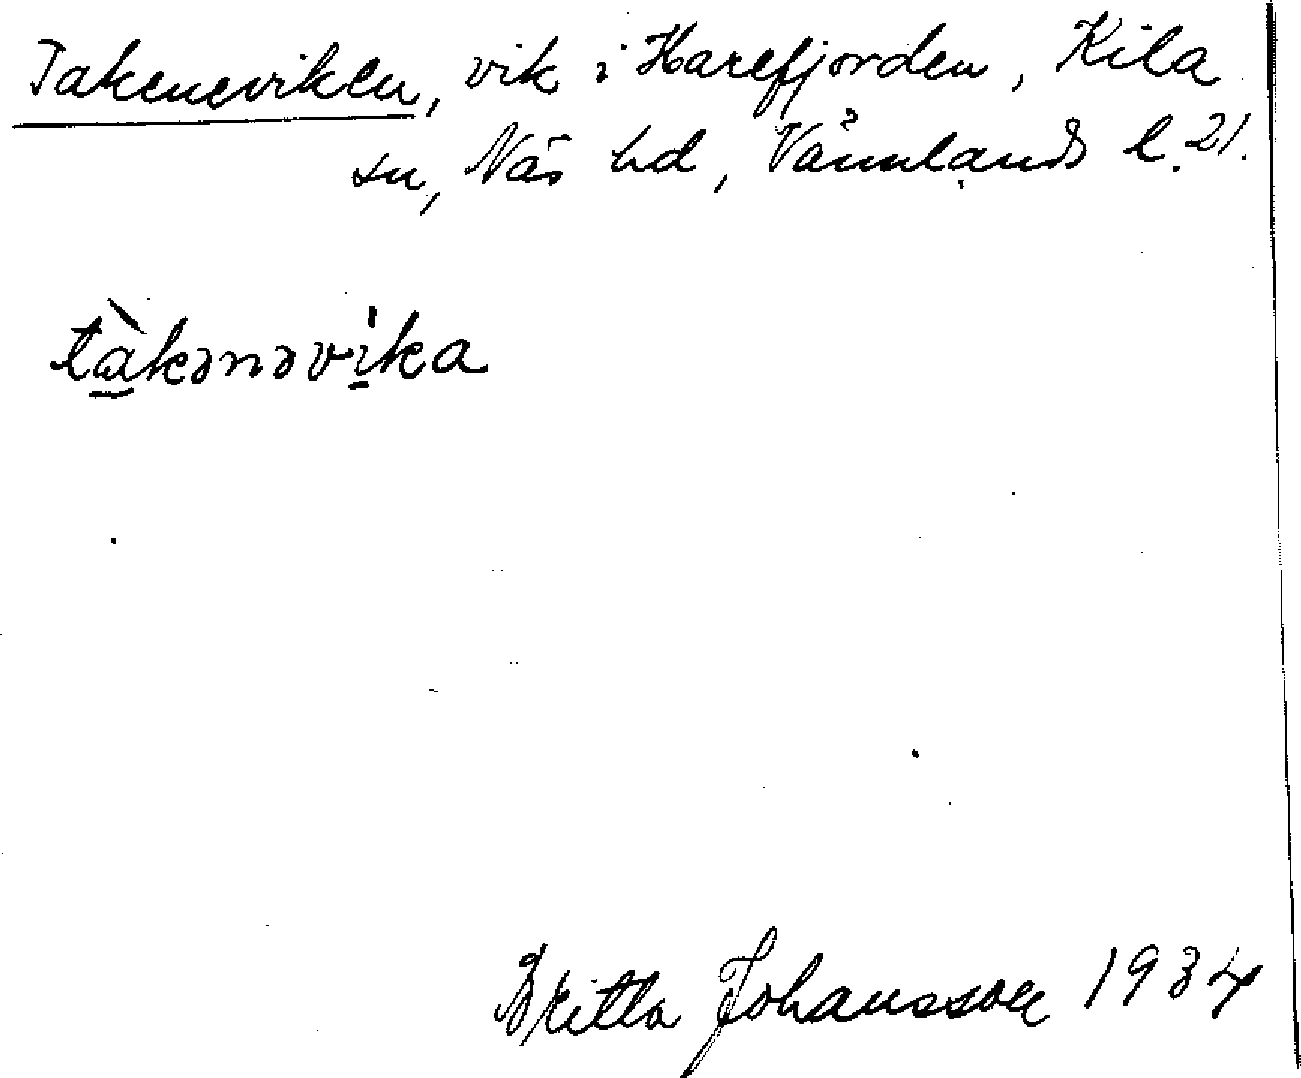 Takeneviken, vik i Harefjorden, Kila
sn, Näs hd, Värmlands l. 21.
tàkənəvika
Britta Johansson 1934